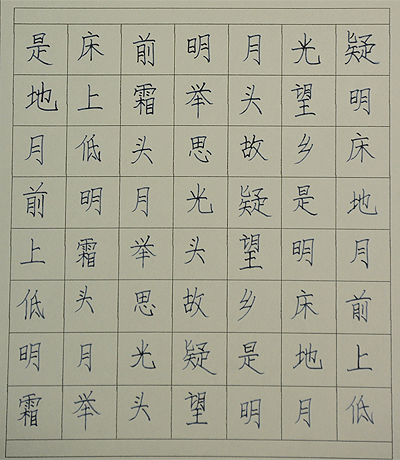 是床前明月光疑
地上霜举头望明
月低头思故乡床
前明月光疑是地
上霜举头望明月
低头思故乡床前
明月光疑是地上
霜举头望明月低